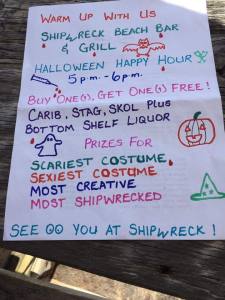 WARM UP WITH US
SHIPWRECK BEACH BAR
& GRILL
HALLOWEEN HAPPY HOUR
5 p.m. - 6 p.m.
BUY ONE(S), GET ONE(S) FREE!
CARIB, STAG, SKOL PLUS
BOTTOM SHELF LIQUOR
PRIZES FOR
SCARIEST COSTUME
SEXIEST COSTUME
MOST CREATIVE
MOST SHIPWRECKED
SEE YOU AT SHIPWRECK!